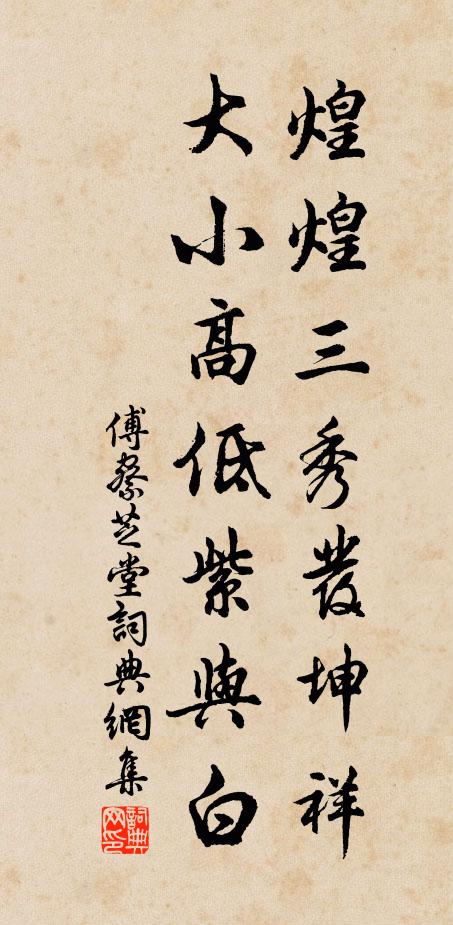 煌煌三秀發坤祥
大小高低紫與白
傅察芝堂詞典網集
詞典網印